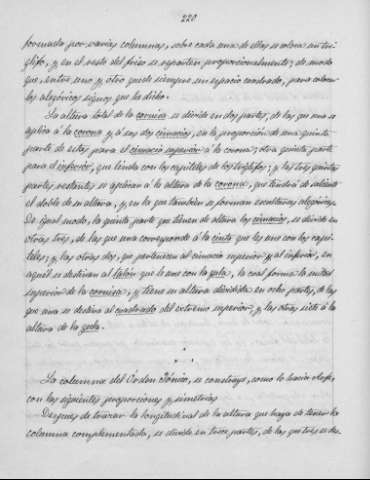 220
formado por varias columnas, sobre cada una de ellas se coloca un tri-
glifo, y en el resto del friso se reparten proporcionalmente; de modo
que, entre uno y otro quede siempre un espacio cuadrado, para colocar
los alegóricos signos que ha dicho.
La altura total de la cornisa se divide en dos partes, de las que una se
aplica á la corona y á sus dos cimacios, en la proporción de una quinta
parte de estas para el cimacio superior á la corona; otra quinta parte
para el inferior, que linda con los capiteles de los triglifos; y las tres quintas
partes restantes se aplican á la altura de la corona, que tendrá de saliente
el doble de su altura, y en la que tambien se forman esculturas alegóricas.
De igual modo, la quinta parte que tienen de altura los cimacios, se divide en
otras tres, de las que una corresponde á la cinta que les une con los capi-
teles; y las otras dos, que pertenecen al cimacio superior y al inferior, en
aquél se destinan al talón que le une con la gola, la cual forma la mitad
superior de la cornisa; y tiene su altura dividida en ocho partes, de las
que una se destina al cuadrado del extremo superior, y las otras siete á la
altura de la gola.
La columna del Orden Jónico, se construye, como lo hacia
con las siguientes proporciones y simetrías
Despues de trazar la longitudinal de la altura que haya de tener la
columna complementada, se divide en trece partes, de las que tres se des-